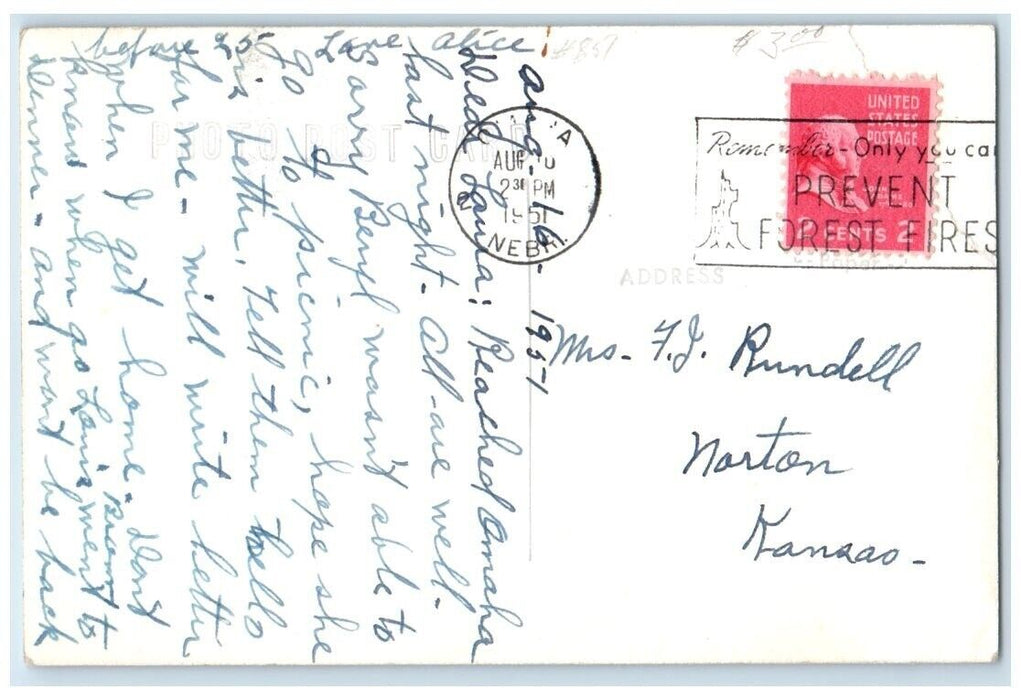 Aug-16-1951
Dear Laura: Reached Omaha
last night - All are well.
Sorry Beryl wasn't able to
go to picnic, hope she
is better, Tell them hello
for me - will write letter
when I get home - Dont
know when go Louis Brown went to
Denver - and wont be back
before 25 Love Alice
#857
$3.00
PHOTO POST CARD
AUG
2 30 PM
1951
NEBR.
UNITED
STATES
POSTAGE
2 CENTS 2
Remember - Only you can
PREVENT
FOREST FIRES
ADDRESS
Mrs - F.J. Rundell
Norton
Kansas -